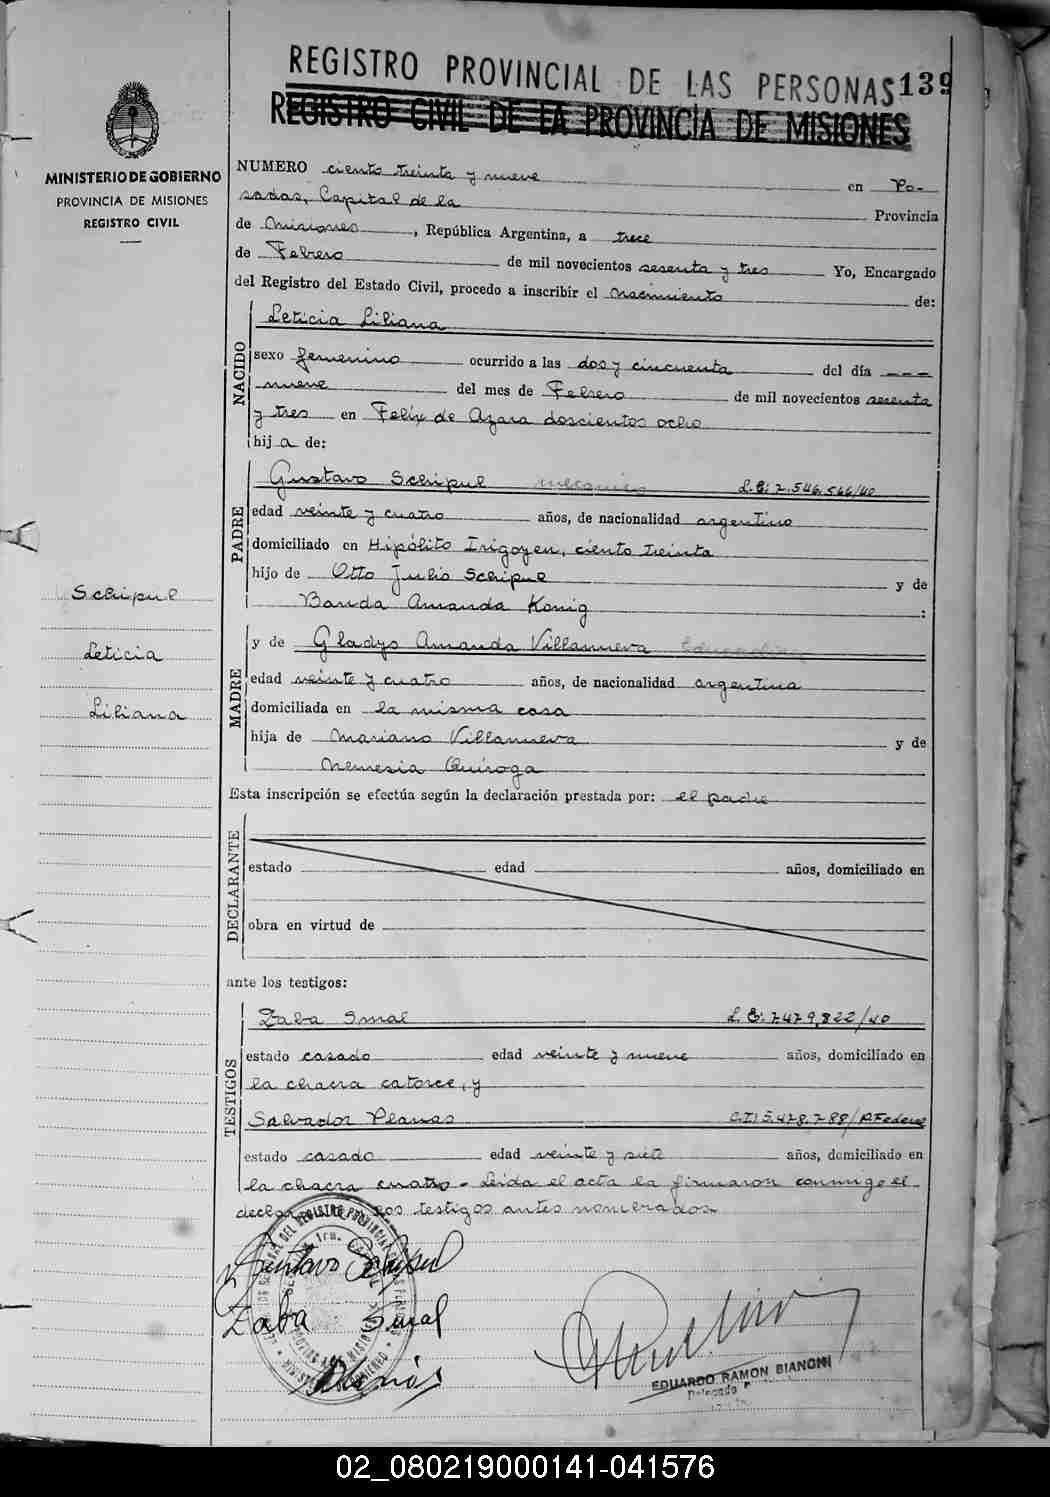 REGISTRO PROVINCIAL DE LAS PERSONAS 139
REGISTRO CIVIL DE LA PROVINCIA DE MISIONES
MINISTERIO DE GOBIERNO
PROVINCIA DE MISIONES
REGISTRO CIVIL
NUMERO ciento treinta y nueve en Po-
sadas, Capital de la Provincia
de Misiones, República Argentina, a trece
de Febrero de mil novecientos sesenta y tres Yo, Encargado
del Registro del Estado Civil, procedo a inscribir el nacimiento de:
NACIDO
Leticia Liliana
sexo femenino ocurrido a las dos y cincuenta del día ---
nueve del mes de Febrero de mil novecientos sesenta
y tres en Felix de Azara doscientos ocho
hija de:
PADRE
Gustavo Schipul mecanico L.E: 7.546.566/40
edad veinte y cuatro años, de nacionalidad argentino
domiciliado en Hipólito Irigoyen, ciento treinta
hijo de Otto Julio Schipul y de
Banda Amanda Konig :
Schipul
Leticia
Liliana
MADRE
y de Gladys Amanda Villanueva
edad veinte y cuatro años, de nacionalidad argentina
domiciliada en la misma casa
hija de Mariano Villanueva y de
Nemesia Quiroga
Esta inscripción se efectúa según la declaración prestada por: el padre
DECLARANTE
estado edad años, domiciliado en
obra en virtud de
ante los testigos:
TESTIGOS
Zaba Smal L.E: 7.479,822/40
estado casado edad veinte y nueve años, domiciliado en
la chacra catorce, y
Salvador Planas C.I) 5.478.788/P.Federal
estado casado edad veinte y siete años, domiciliado en
la chacra cuatro - Leida el acta la firmaron conmigo el
testigos antes nombrados.
Gustavo Schipul
Zaba Smal
EDUARDO RAMON BIANCHI
Delegado
02_080219000141-041576